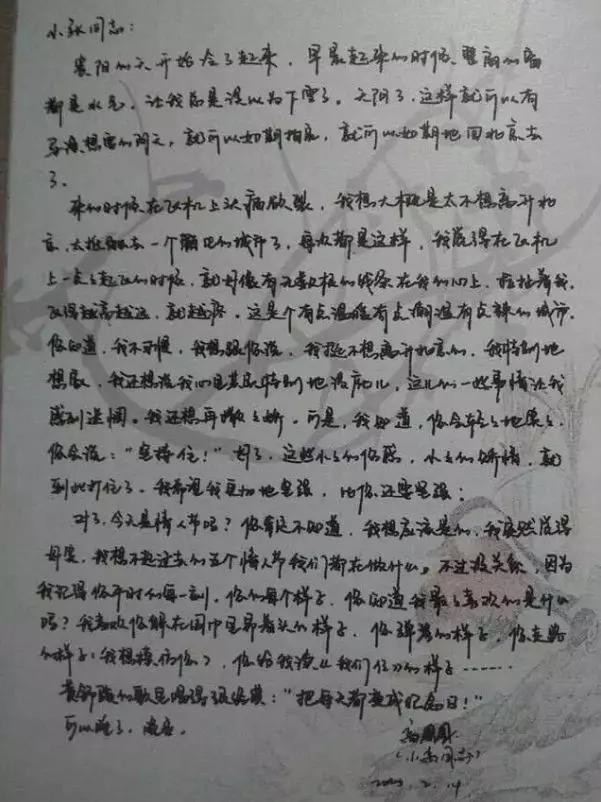 小张同志：
贵阳的天开始冷了起来，早晨起来的时候，整间的窗
都是水气，让我总是误以为下雪了。天阴了，这样就可以有
导演想要的阴天，就可以如期拍完，就可以如期地回北京去
了。
来的时候在飞机上头痛欲裂，我想大概是太不想离开北
京，去一个陌生的城市了，每次都是这样，我觉得在飞机
上一点点起飞的时候，就好像有无数根的线系在我的心上，拉扯着我，
飞得越高越远，就越疼。这是个有点温暖有点潮湿有点辣的城市。
你知道，我不习惯，我想跟你说，我挺不想离开北京的，我特别地
想家，我还想说我的心里其实特别地没底儿，这儿的一些事情让我
感到迷惘。我还想再撒撒娇。可是，我知道，你会轻轻地摇头，
你会说："坚持住！"对了，这些小小的伤感，小小的矫情，就
到此打住了。我希望我更加地坚强，比你还要坚强；
对了，今天是情人节吗？你肯定不知道，我想应该是的，我突然觉得
好笑，我想不起过去的五个情人节我们都在做什么。不过没关系，因为
我记得你平时的每一刻，你的每个样子，你知道我最喜欢的是什么
吗？我喜欢你解在围巾里晃着头的样子，你弹琴的样子，你走路
的样子（我想模仿你），你给我读《我们仨》的样子……
黄舒骏的歌里唱得很好："把每天都变成纪念日！"
可以睡了，晚安。
高圆圆
（小高同志）
2.14